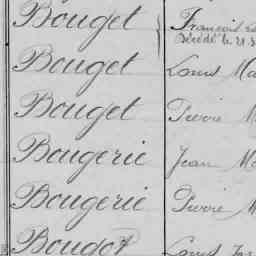 Bouget François
Décédé le 21
Bouget Louis Ma
Bouget Pierre M
Bougerie Jean Ma
Bougerie Pierre M
Bougot Louis